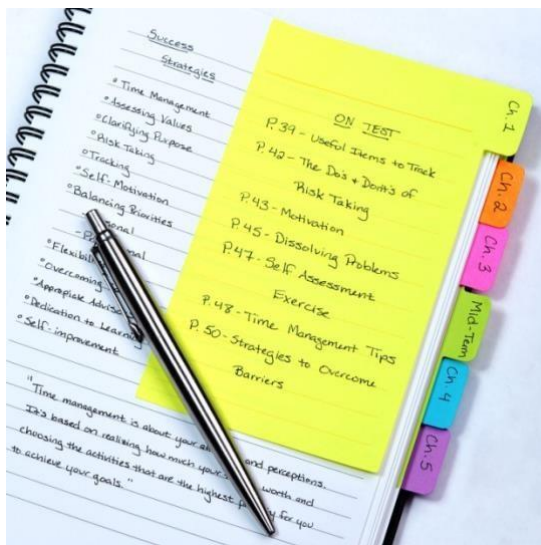 Success
Strategies
° Time Management
° Assessing Values
° Clarifying Purpose
° Risk Taking
° Tracking
° Self-Motivation
° Balancing Priorities
° Flexibil
° Overcoming
Advis
° Dedication to Learn
° Self-improvement
"Time management is about your and perceptions.
It's based on realizing how much your worth and
choosing the activities that are the highest for you
to achieve your goals."
ON TEST
P. 39 - Useful Items to Track
P. 42 - The Do's + Dont's of
Risk Taking
P. 43 - Motivation
P. 45 - Dissolving Problems
P. 47 - Self Assessment
Exercise
P. 48 - Time Management Tips
P. 50 - Strategies to Overcome
Barriers
Ch. 1
Ch. 2
Ch. 3
Mid-Term
Ch. 4
Ch. 5